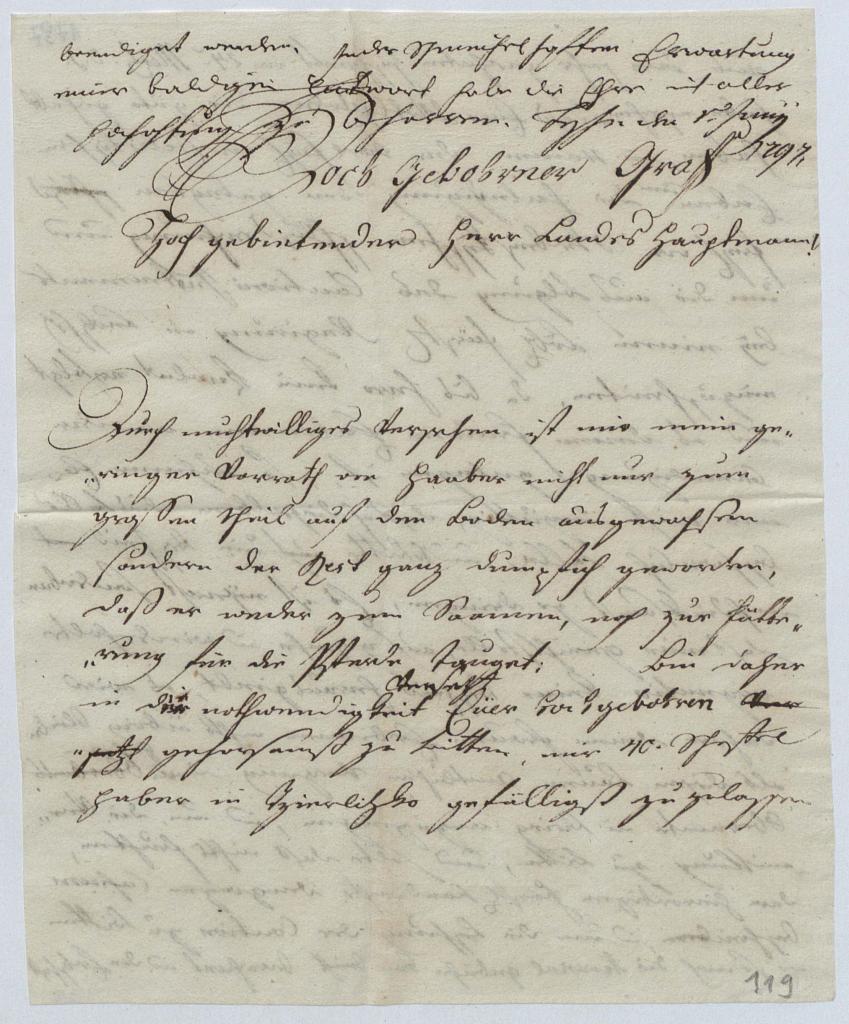 beendiget werden. In der schmeichelhaften Erwartung
einer baldigen Antwort habe die Ehre mit aller
Hochachtung zu verharren. den 1797
Hoch Gebohrner Graf
Hoch gebietender Herr Landes Hauptmann!
Durch muthwilliges Versehen ist mir mein ge„
„ringer Vorrath an Haaber nicht nur zum
grossen Theil auf dem Boden ausgewachsen
sondern der Rest ganz dumpfich geworden,
daß er weder zum Saamen, noch zur Fütte„
„rung für die Pferde tauget; bin daher
in die nothwendigkeit Versetzt Euer Hochgebohren Ver
„setzt gehorsamst zu bitten, mir 40. Scheffel
Haber in Czierlitzko gefälligst zu zulassen
119